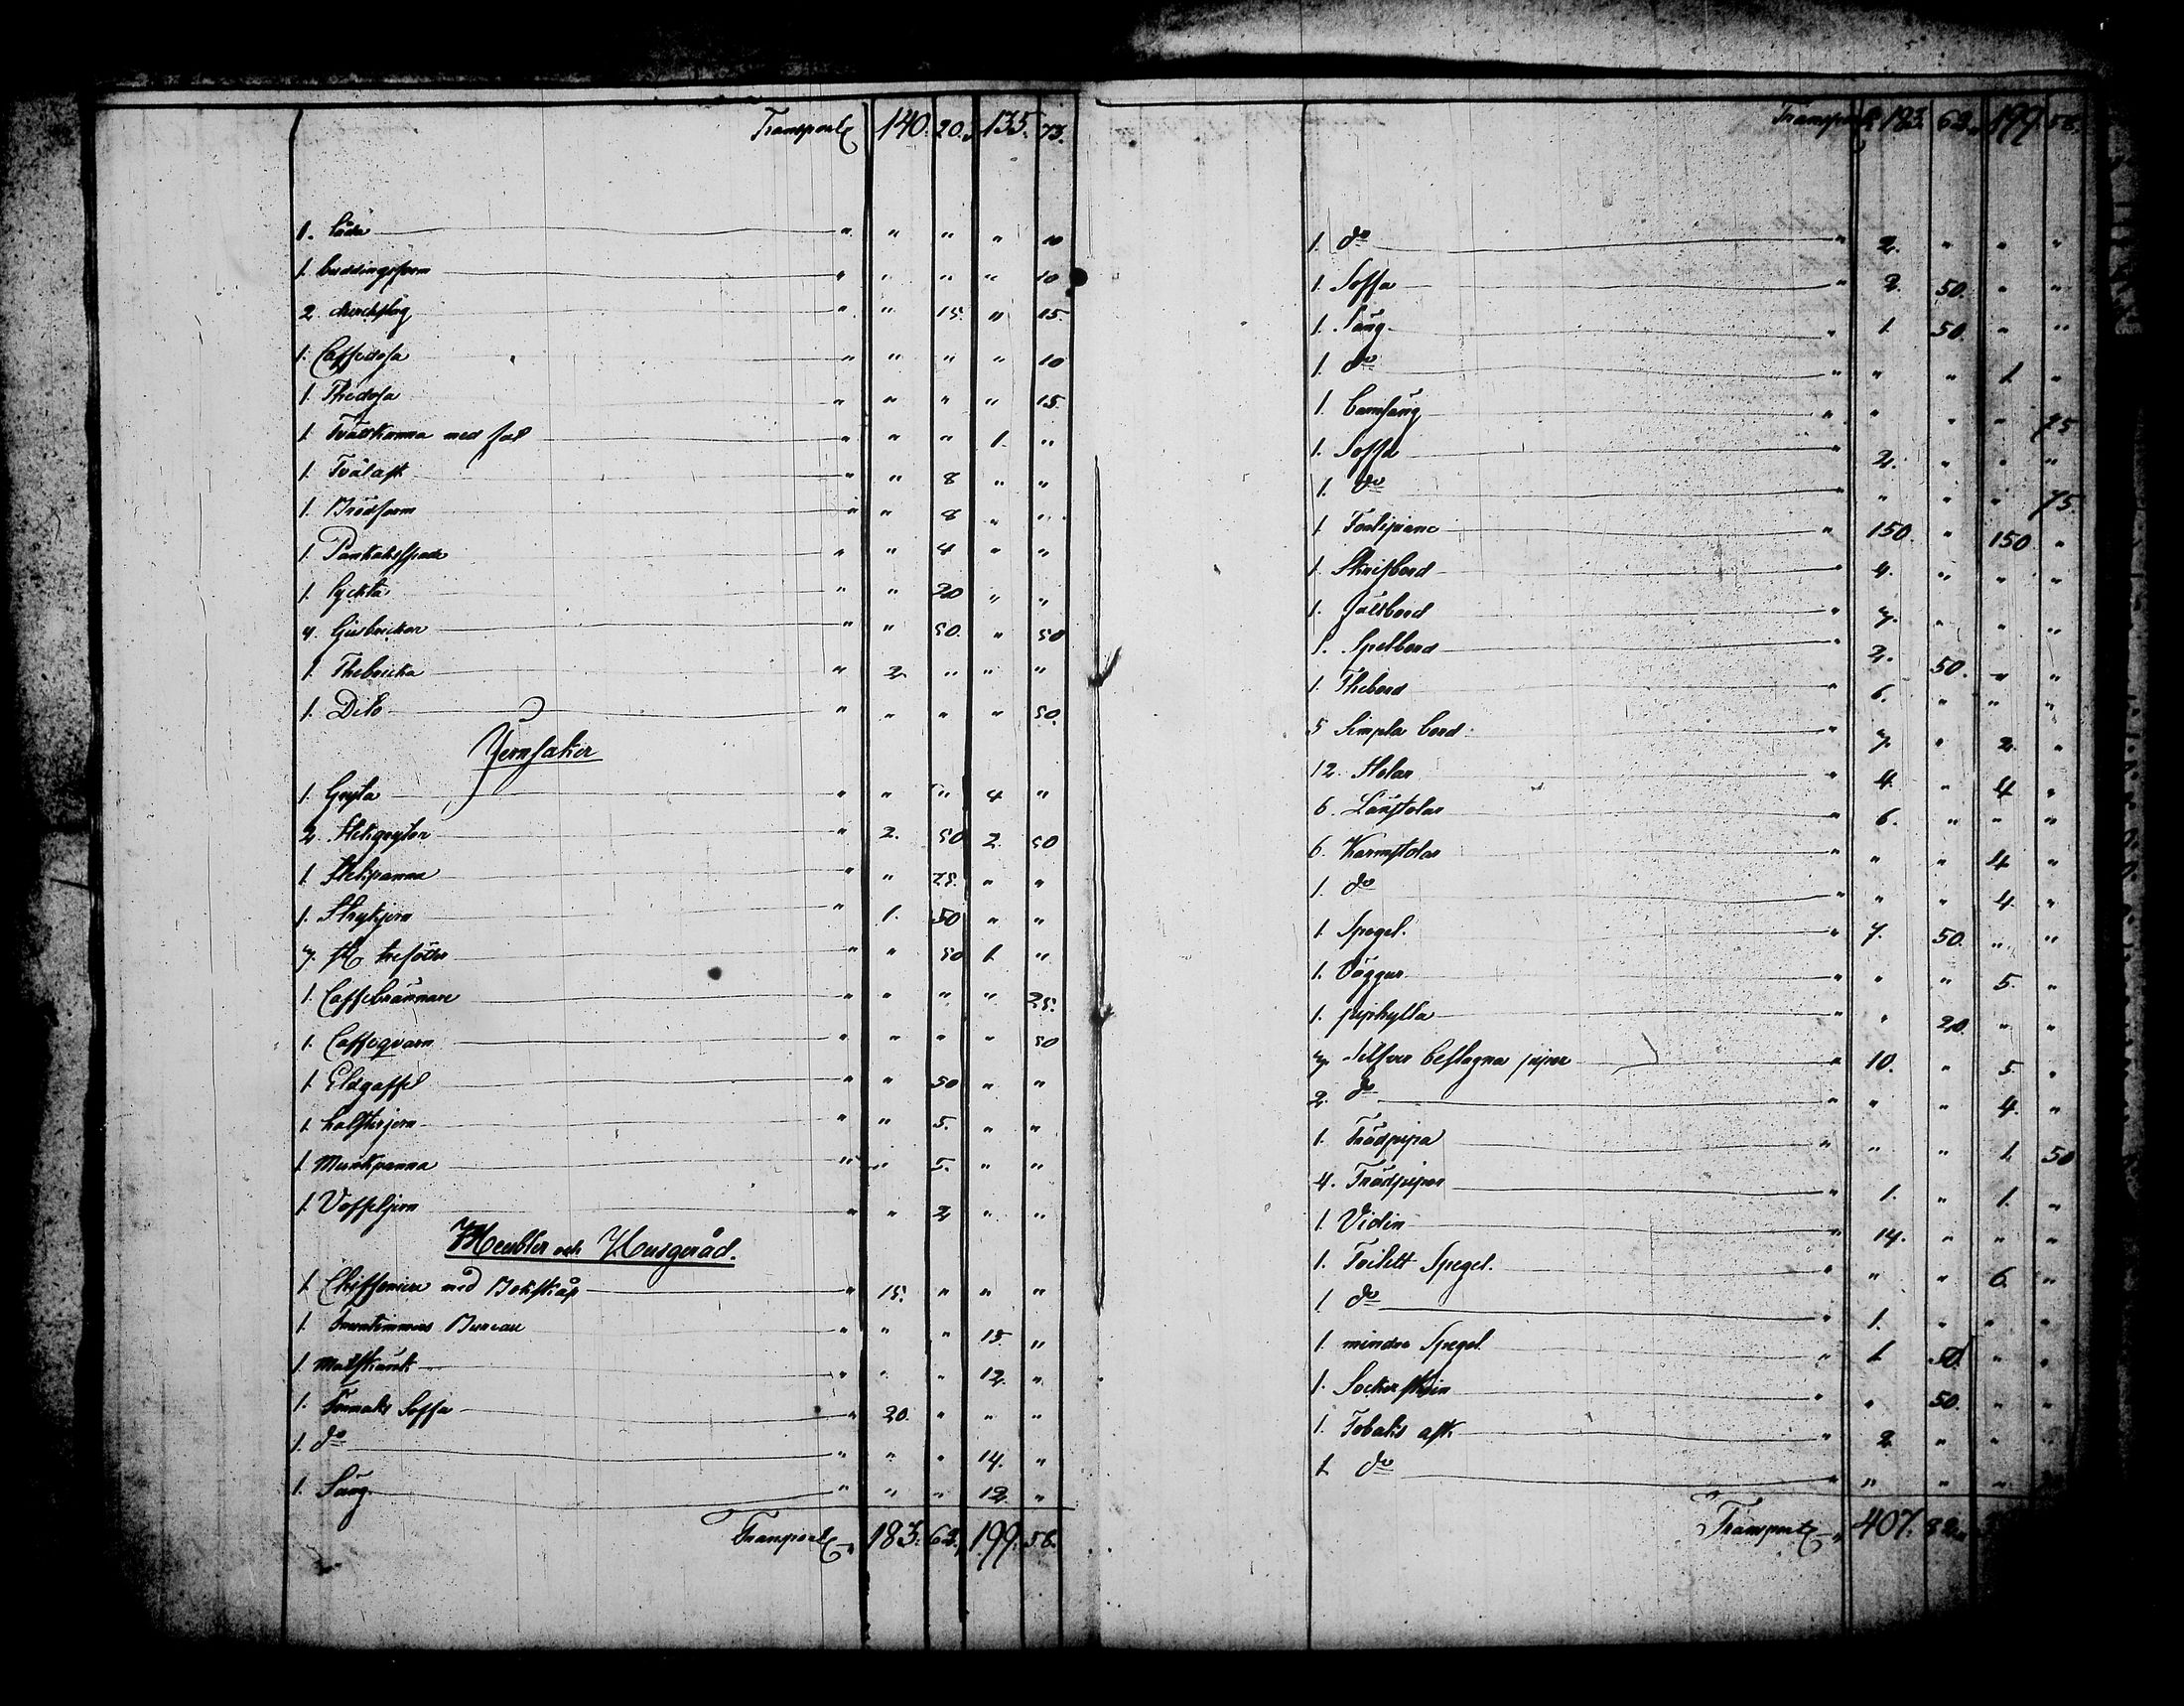 Transport 140. 20. 135. 73.
1. låda " " " " 10
1. buddingsform " " " " 10
2. durchslag " " 15. " 15.
1. Caffedosa " " " " 10
1. Thedosa " " " " 15.
1. Tvättkanna med fat " " " 1. "
1. Tvålask " " 8 " "
1. Brödform " " 8 " "
1. Pankaksspade " " 4 " "
1. lyckta " " 20 " "
4. Ljusbrickor " " 50. " 50
1. Thebricka " 2. " " "
1. Dito " " " " 50.
Jernsaker
1. Gryta " " " 4 "
2. Stekgrytor " 2. 50 2. 50
1. Stekpanna " " 25. " "
1. Strykjern " 1. 50 " "
7. st. trefötter " " 50 1. "
1. Caffebrännare " " " " 25.
1. Caffeqvarn " " " " 50
1. Eldgaffel " " 50 " "
1. halsterjern " " 5. " "
1. Munkpanna " " 5. " "
1. Voffeljern " " 2 " "
Meubler och Husgeråd.
1. Chiffonier med Bokskåp " 15. " " "
1. Fruntimmers Bureau " " " 15. "
1. Matskänk " " " 12. "
1. Förmaks Soffa " 20. " " "
1. do " " " 14. "
1. Säng " " " 12. "
Transport " 183. 62. 199. 58.
Transport 183. 62. 199. 58.
1. do " 2. " " "
1. Soffa " 2. 50. " "
1. Säng " 1. 50. " "
1. do " " " 1. "
1. barnsäng " " " " 75
1. Soffa " 2. " " "
1. do " " " " 75.
1. Fortepiano " 150. " 150 "
1. Skrifbord " 4. " " "
1. Fällbord " 7. " " "
1. Spelbord " 2. 50. " "
1. Thebord " 6. " " "
5 Simpla bord " 7. " 2. "
12. Stolar " 4. " 4 "
6. Länstolar " 6. " " "
6. Karmstolar " " " 4 "
1. do " " " 4. "
1. Spegel. " 7. 50. " "
1. Vaggur " " " 5. "
1. piphylla " " 20. " "
7. Silfver beslagna pipor " 10. " 5. "
2. do " " " 4. "
1. Trädpipa " " " 1. 50
4. Trädpipor " 1. " 1. "
1. Violin " 14. " " "
1. Toilett Spegel. " " " 6. "
1. do " 1. " " "
1. mindre Spegel " 1. 50. " "
1. Sockerskrin " " 50. " "
1. Tobaks ask " 2 " " "
1. do " " " "
Transport " 407. 82.